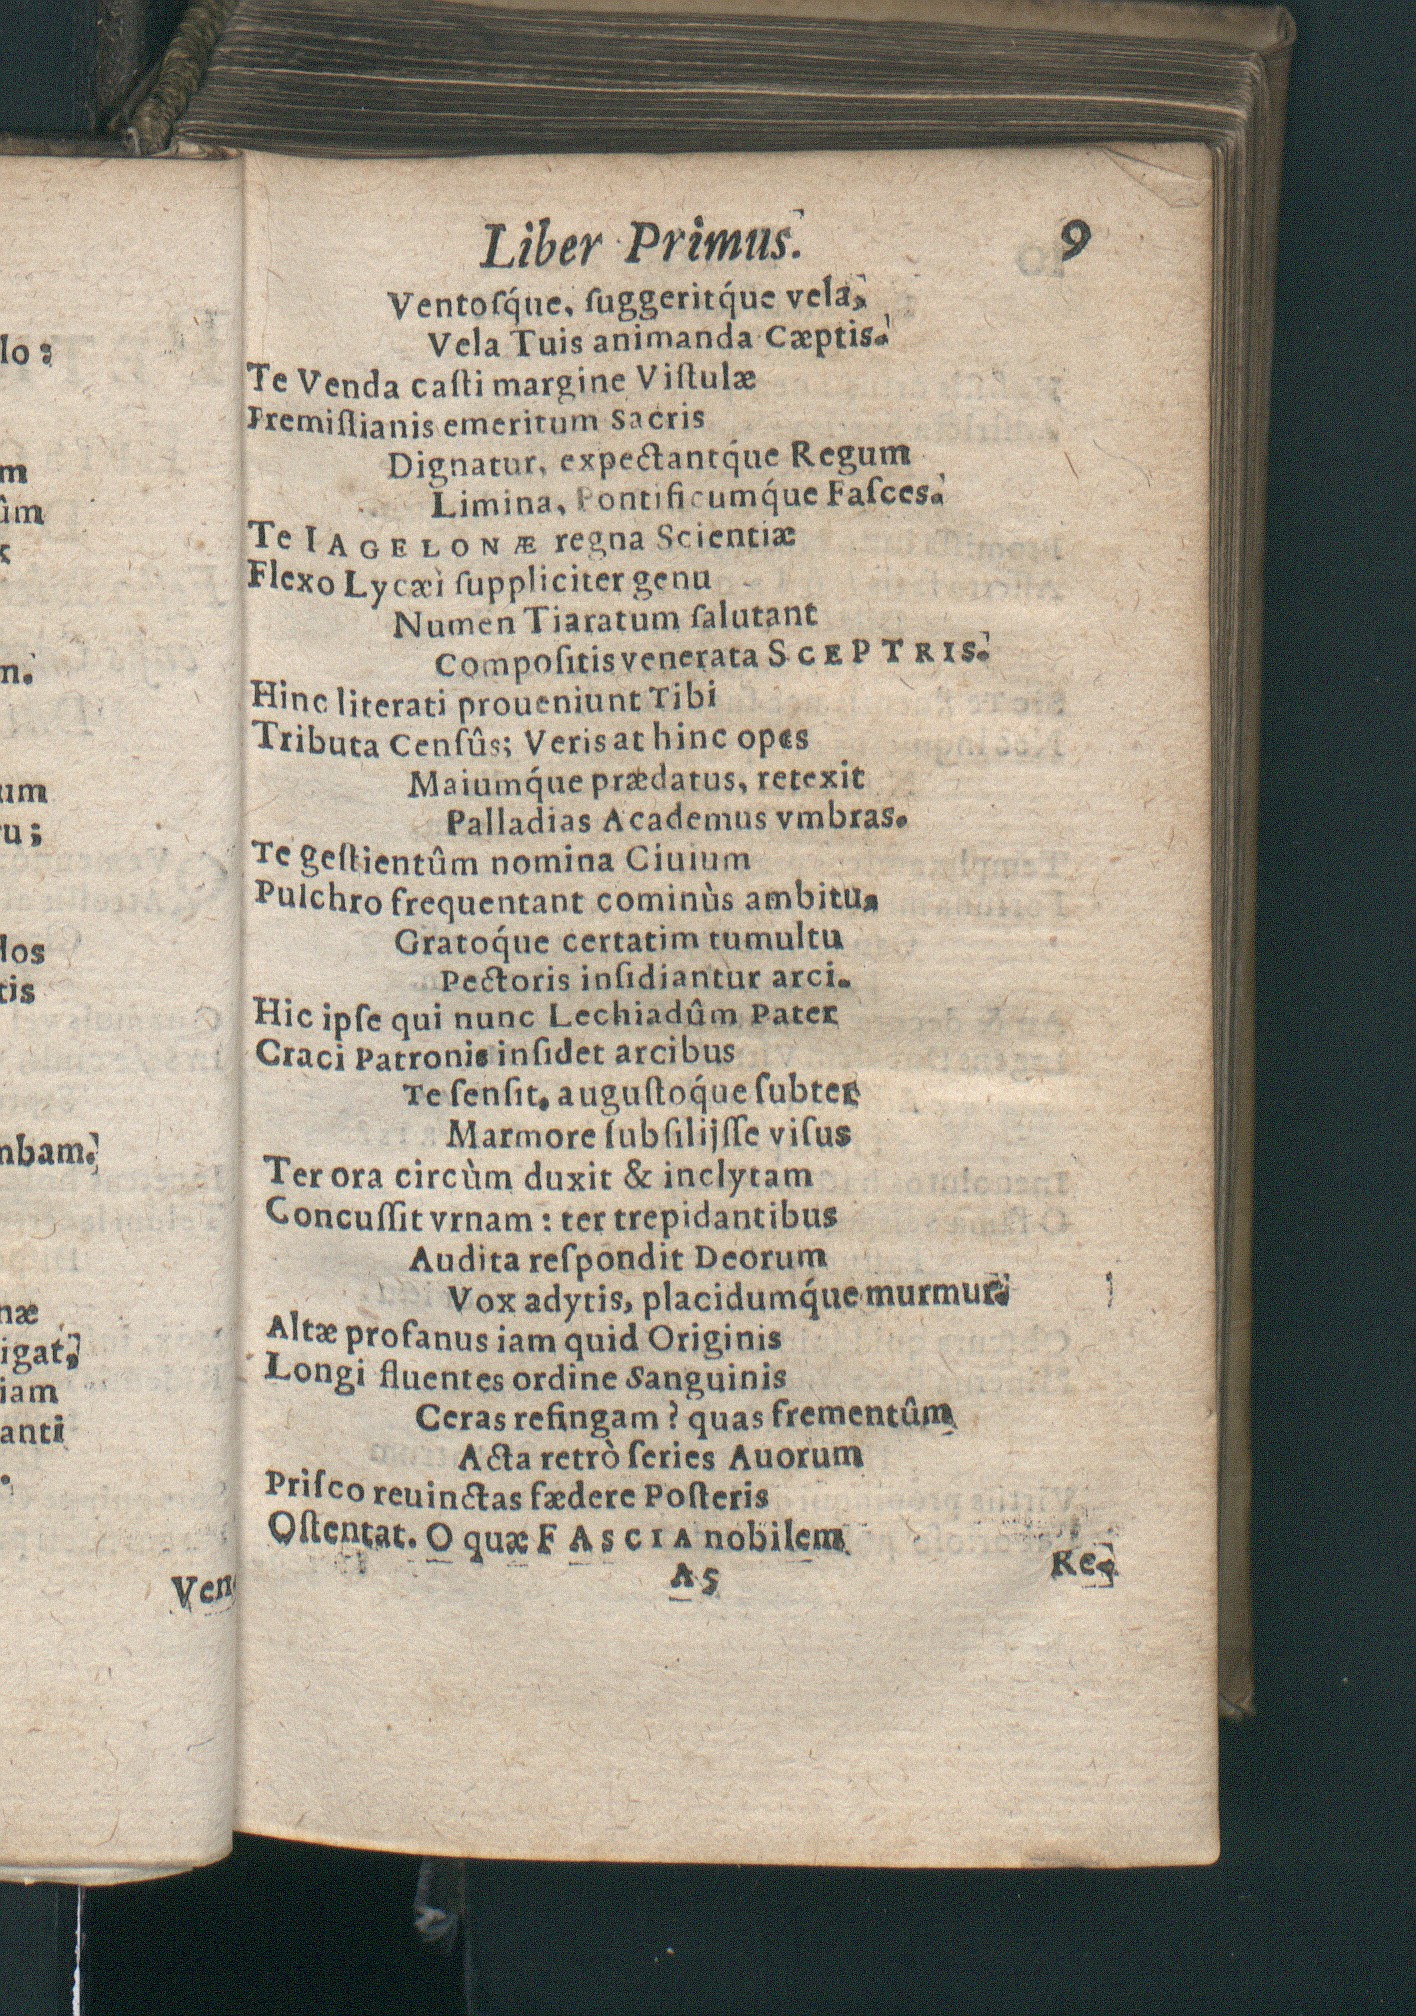 lo:
m
ûm
x
n.
um
ru;
los
tis
nbam.
næ
igat,
iam
anti
Ven
Liber Primus. 9
Ventoſq́ue, ſuggeritq́ue vela,
Vela Tuis animanda Cæptis.
Te Venda caſti margine Viſtulæ
Premiſlianis emeritum Sacris
Dignatur, expectantq́ue Regum
Limina, Pontificumq́ue Faſces.
Te IAGELONÆ regna Scientiæ
Flexo Lycæi ſuppliciter genu
Numen Tiaratum ſalutant
Compoſitis venerata SCEPTRIS.
Hinc literati proueniunt Tibi
Tributa Cenſûs; Veris at hinc opes
Maiumq́ue prædatus, retexit
Palladias Academus vmbras.
Te geſtientûm nomina Ciuium
Pulchro frequentant cominùs ambitu,
Gratoq́ue certatim tumultu
Pectoris inſidiantur arci.
Hic ipſe qui nunc Lechiadûm Pater
Craci Patronis inſidet arcibus
Te ſenſit, auguſtoq́ue ſubter
Marmore ſubſilijſſe viſus
Ter ora circùm duxit & inclytam
Concuſſit vrnam: ter trepidantibus
Audita reſpondit Deorum
Vox adytis, placidumq́ue murmur.
Altæ profanus iam quid Originis
Longi fluentes ordine Sanguinis
Ceras refingam? quas frementûm
Acta retrò ſeries Auorum
Priſco reuinctas fædere Poſteris
Oſtentat. O quæ FASCIA nobilem
A5 Re-